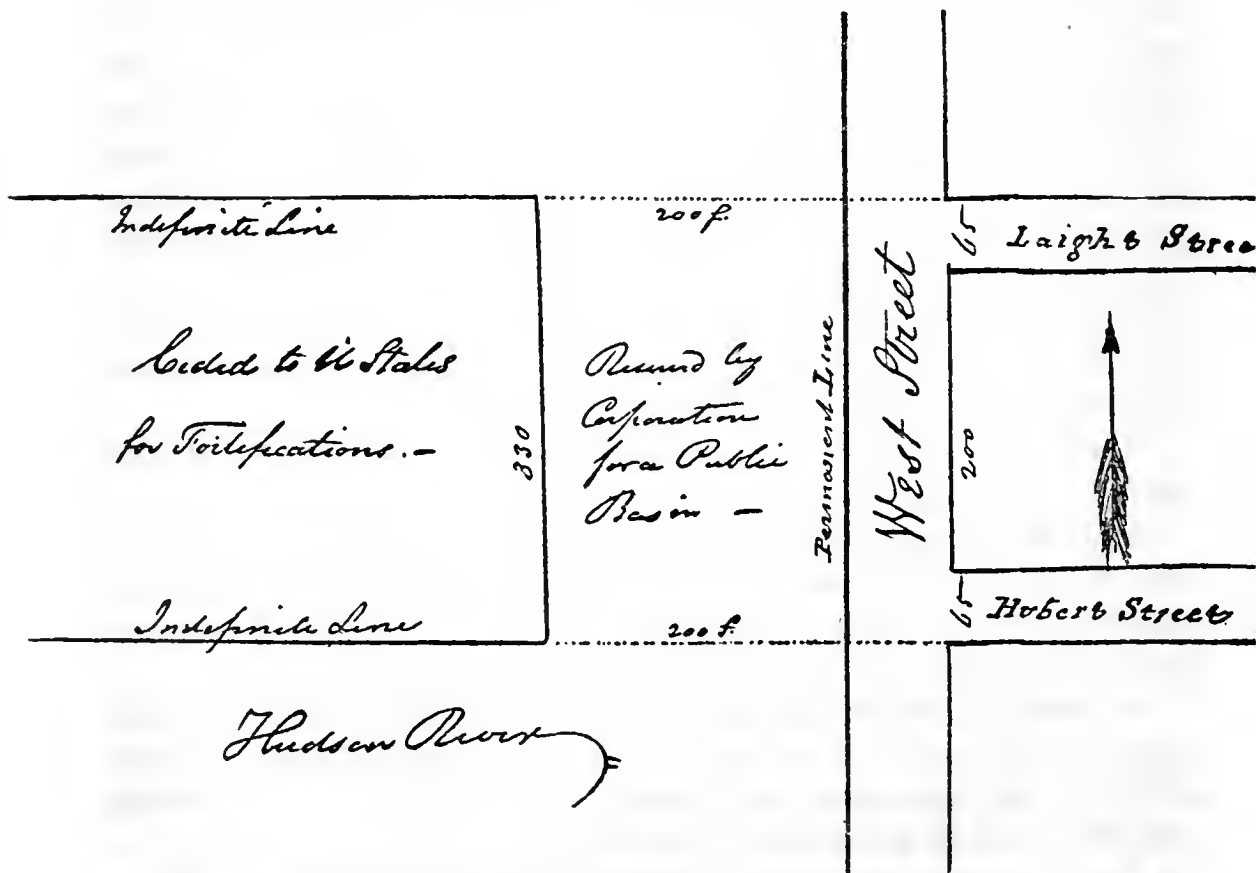 Indefinite Line
200 f.
65
Laight Stree
Ceded to U States
for Fortifications. -
330
Reserved by
Corporation
for a Public
Basin -
Permanent Line
West Street
200
Indefinite Line
200 f.
65
Hubert Street
Hudson River